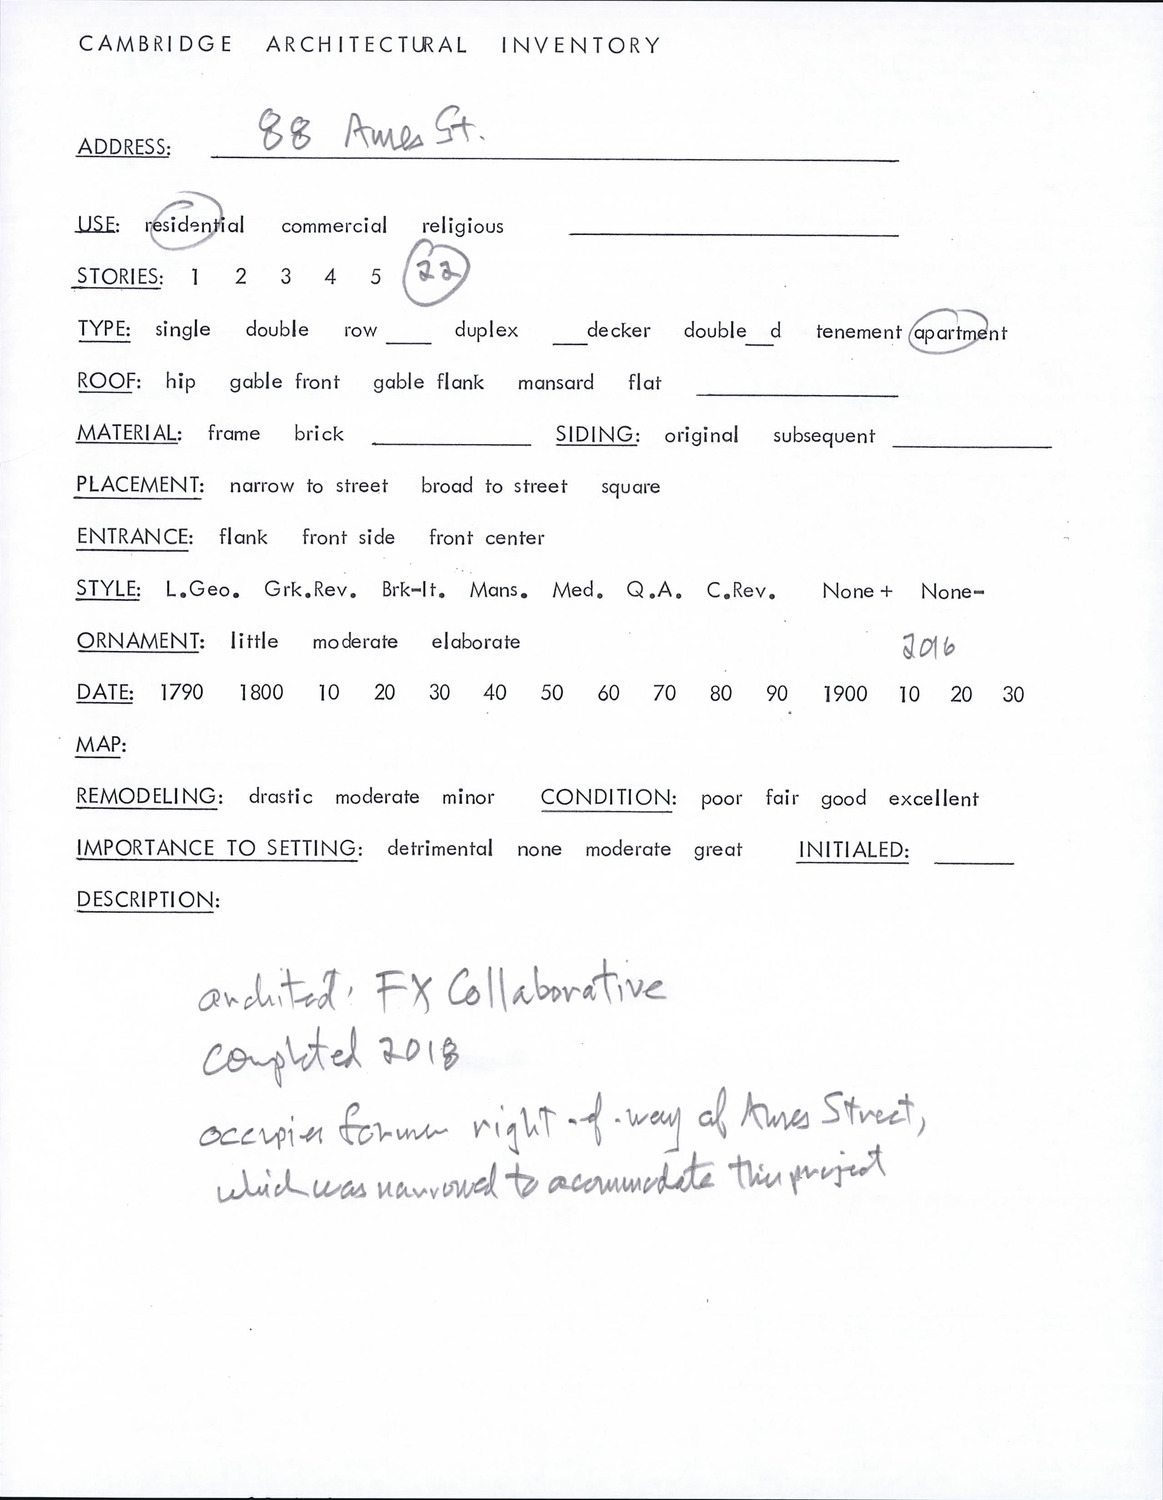 CAMBRIDGE ARCHITECTURAL INVENTORY
ADDRESS: 88 Ames St.
USE: residential commercial religious
STORIES: 1 2 3 4 5 22
TYPE: single double row ____ duplex ___decker double__d tenement apartment
ROOF: hip gable front gable flank mansard flat
MATERIAL: frame brick SIDING: original subsequent
PLACEMENT: narrow to street broad to street square
ENTRANCE: flank front side front center
STYLE: L.Geo. Grk.Rev. Brk-It. Mans. Med. Q.A. C.Rev. None + None-
ORNAMENT: little moderate elaborate
2016
DATE: 1790 1800 10 20 30 40 50 60 70 80 90 1900 10 20 30
MAP:
REMODELING: drastic moderate minor CONDITION: poor fair good excellent
IMPORTANCE TO SETTING: detrimental none moderate great INITIALED:
DESCRIPTION:
architect: FX Collaborative
completed 2018
occupies former right-of-way of Ames Street,
which was narrowed to acommodate this project